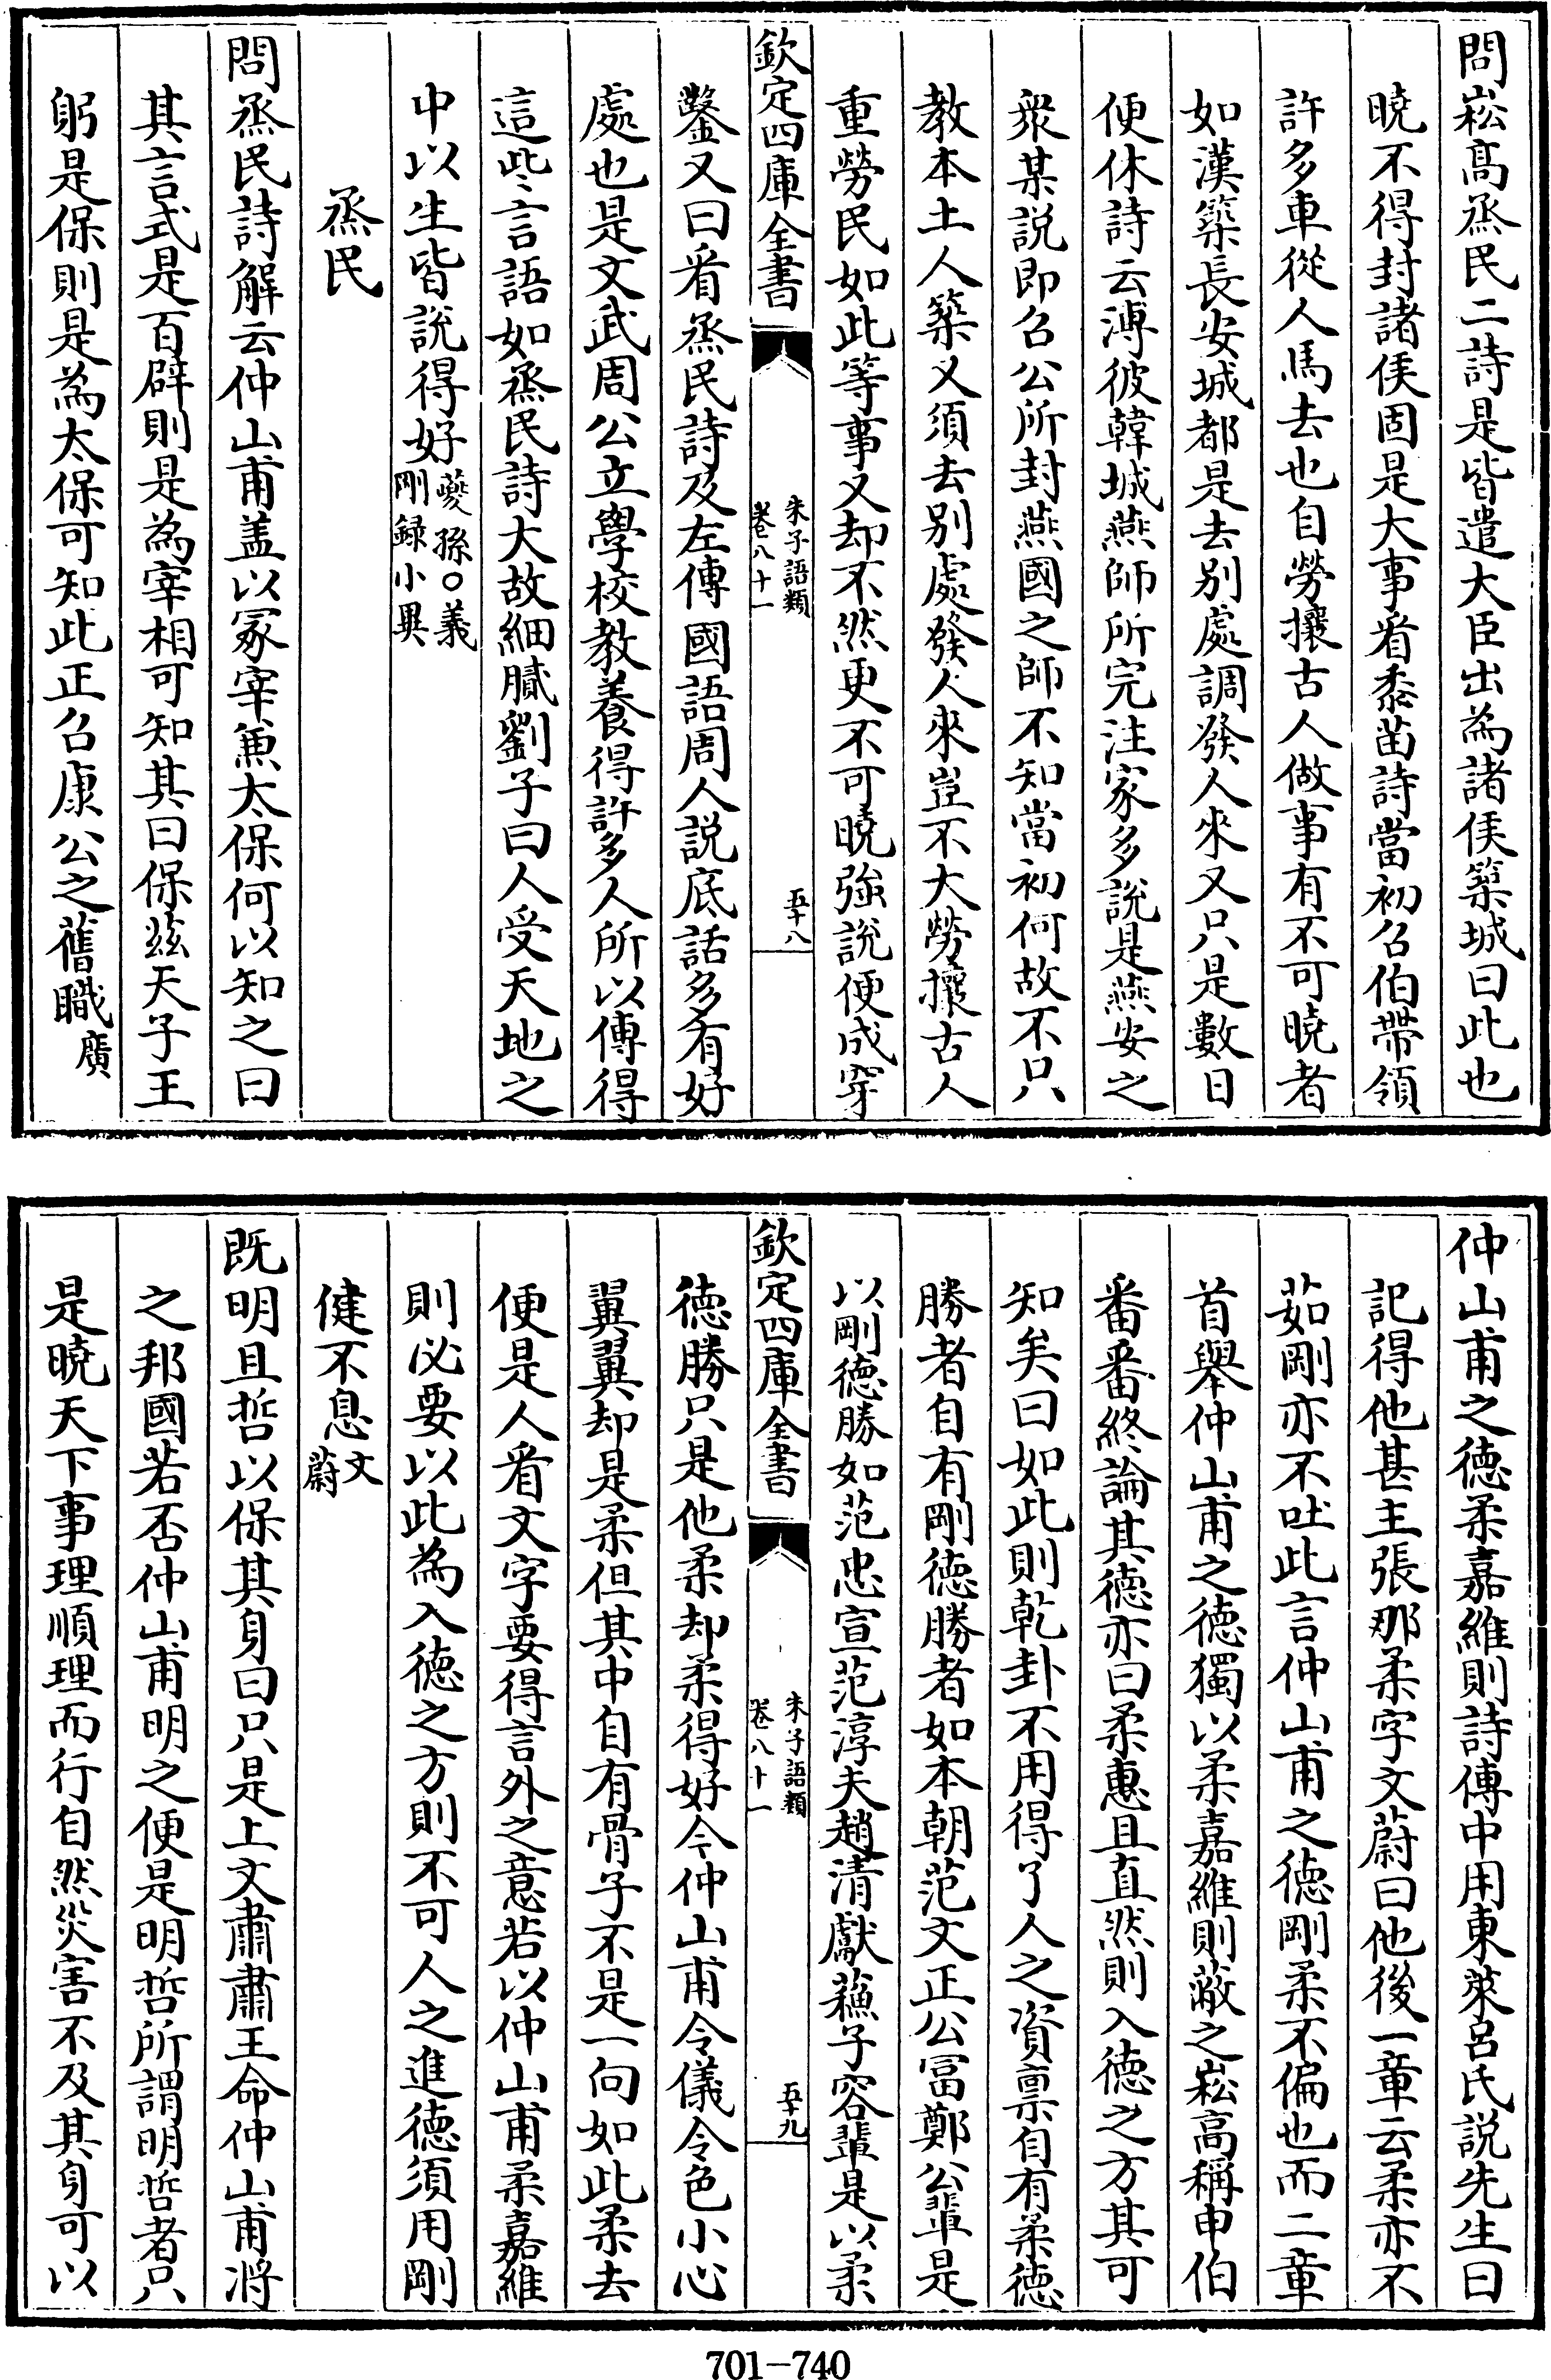 問崧髙烝民二詩是皆遣大臣出為諸侯築城曰此也
曉不得封諸侯固是大事看黍苗詩當初召伯帶領
許多車從人馬去也自勞攘古人做事有不可曉者
如漢築長安城都是去别處調發人來又只是數日
便休詩云溥彼韓城燕師所完注家多說是燕安之
衆某説即召公所封燕國之師不知當初何故不只
教本土人築又須去别處發人來豈不大勞攘古人
重勞民如此等事又却不然更不可曉強說便成穿
欽定四庫全書
朱子語類
卷八十一
五十八
鑿又曰看烝民詩及左傳國語周人説底話多有好
處也是文武周公立學校教養得許多人所以傳得
這些言語如烝民詩大故細膩劉子曰人受天地之
中以生皆說得好夔孫○義
剛録小異
烝民
問烝民詩解云仲山甫盖以冢宰兼太保何以知之曰
其言式是百辟則是為宰相可知其曰保兹天子王
躬是保則是為太保可知此正召康公之舊職廣
仲山甫之徳柔嘉維則詩傳中用東萊呂氏説先生曰
記得他甚主張那柔字文蔚曰他後一章云柔亦不
茹剛亦不吐此言仲山甫之徳剛柔不偏也而二章
首舉仲山甫之徳獨以柔嘉維則蔽之崧高稱申伯
番番終論其徳亦曰柔惠且直然則入徳之方其可
知矣曰如此則乾卦不用得了人之資禀自有柔徳
勝者自有剛徳勝者如本朝范文正公冨鄭公輩是
以剛徳勝如范忠宣范淳夫趙清獻蘓子容輩是以柔
欽定四庫全書
朱子語類
卷八十一
五十九
徳勝只是他柔却柔得好今仲山甫令儀令色小心
翼翼却是柔但其中自有骨子不是一向如此柔去
便是人看文字要得言外之意若以仲山甫柔嘉維
則必要以此為入徳之方則不可人之進徳須用剛
健不息文
蔚
既明且哲以保其身曰只是上文肅肅王命仲山甫將
之邦國若否仲山甫明之便是明哲所謂明哲者只
是曉天下事理順理而行自然災害不及其身可以
701-740